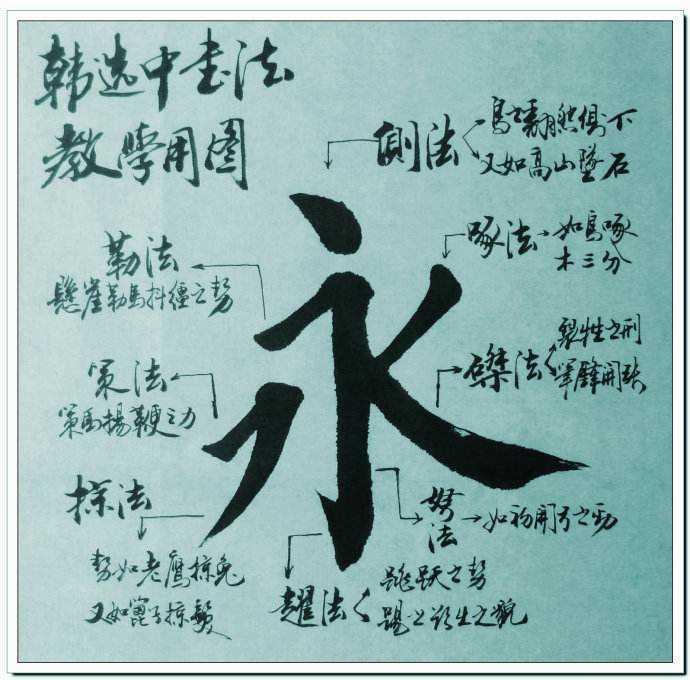 韩选中书法
教學用图
側法
鳥之翻然俱下
又如高山墜石
永
啄法
如鳥啄
木三分
勒法
懸崖勒馬抖繮之势
磔法
裂牲之刑
筆鋒開张
策法
策馬揚鞭之力
掠法
势如老鷹掠兔
又如篦子掠鬓
努法
如初開弓之勁
趯法
跳跃之势
踢之之貌